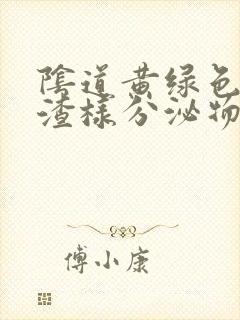 陰道黄绿色
渣樣分泌物
傅小康